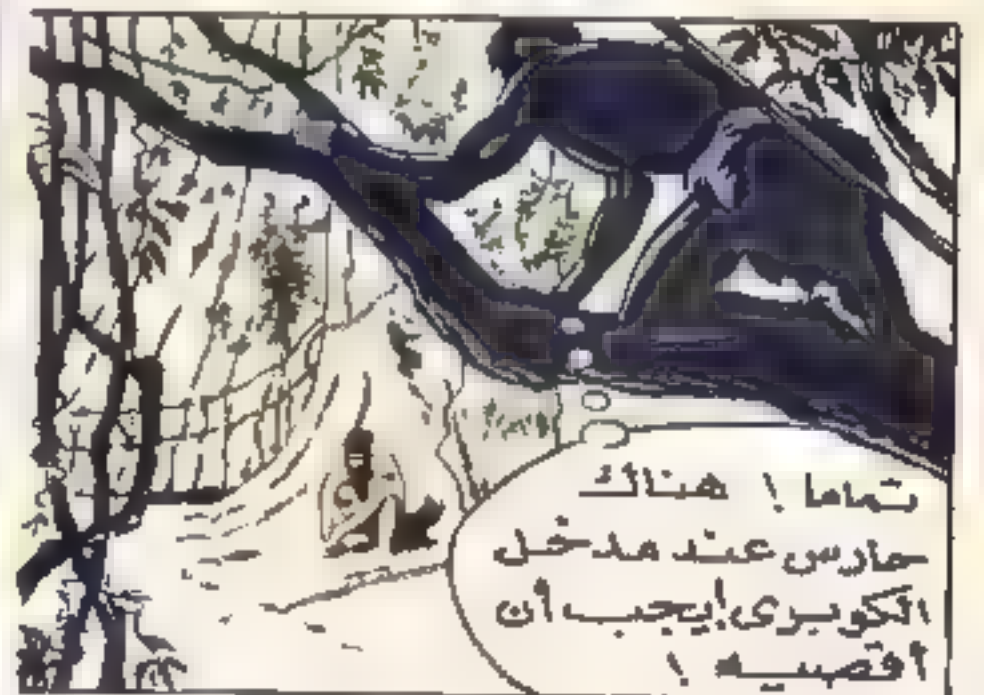 تماما ! هناك
حارس عند مدخل
الكوبرى ! يجب أن
أقصيه !